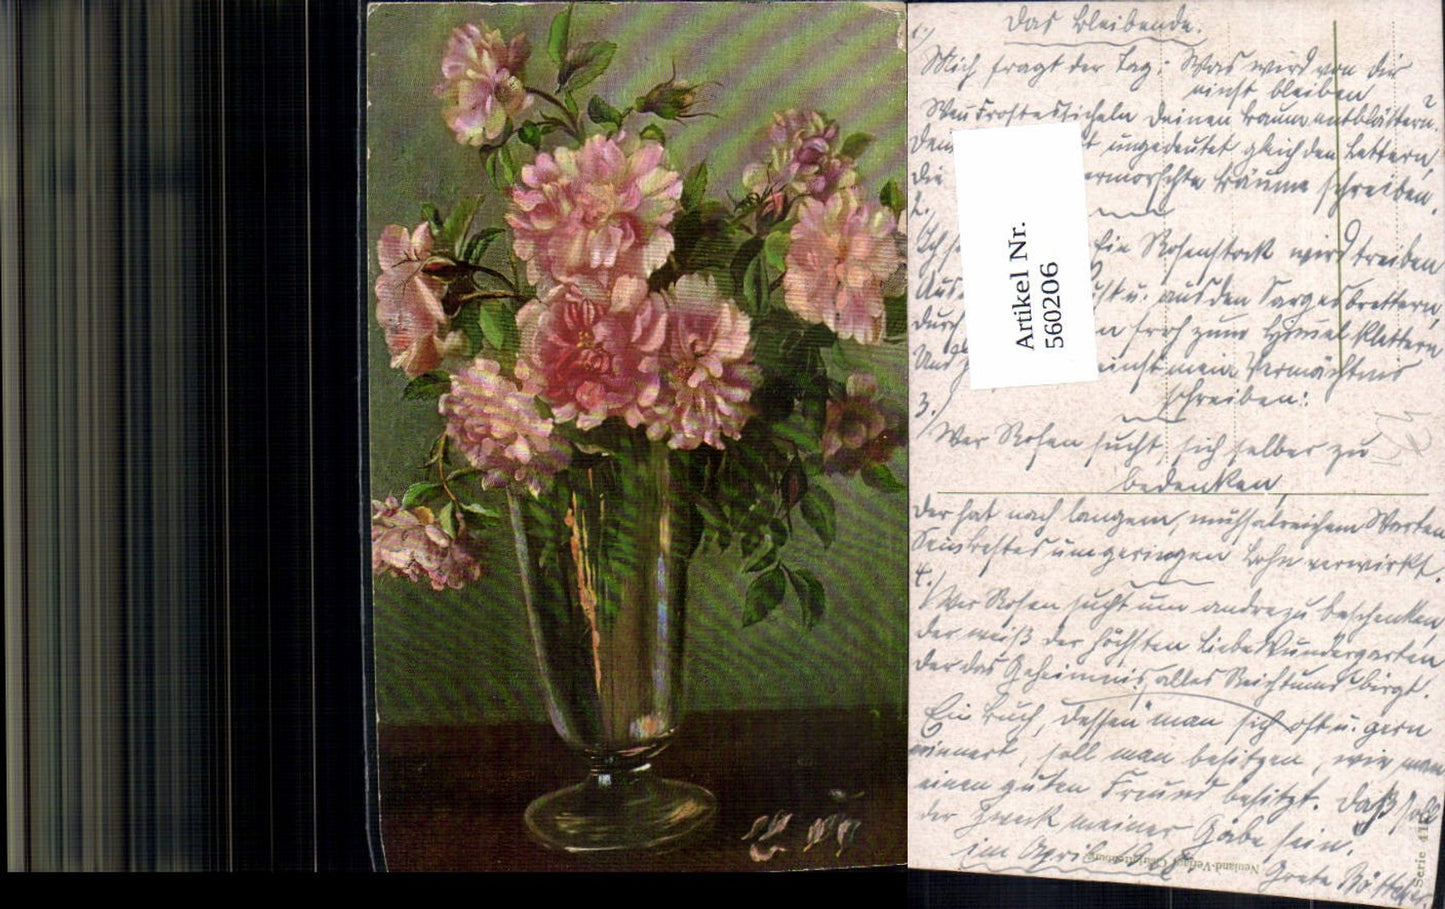 Das Bleibende.
1.)
Mich fragt der Tag: Was wird von dir
einst bleiben
Wen Frostes Sicheln deinen Baum entblättern?
dem ungedeutet gleich den Lettern,
die vermorschte Bäume schreiben.
2.
Ich Ein Rosenstock wird treiben
Aus u. aus den Sargesbrettern,
durch froh zum Himmel klettern
Und einst mein Vermächtnis
schreiben:
3.)
Wer Rosen sucht, sich selber zu
bedenken,
der hat nach langem, mühsalreichem Warten
Sein Bestes um geringen Lohn verwirkt.
4.)
Wer Rosen sucht um andre zu beschenken,
der weiß der höchsten Liebe Wundergarten
der das Geheimnis alles Reichtums birgt.
Ein Buch, dessen man sich oft u. gern
erinnert, soll man besitzen, wie man
einen guten Freund besitzt. Daß soll
der Zweck meiner Gabe sein.
im April
Grete
Artikel Nr.
560206
Neuland-Verlag
Serie